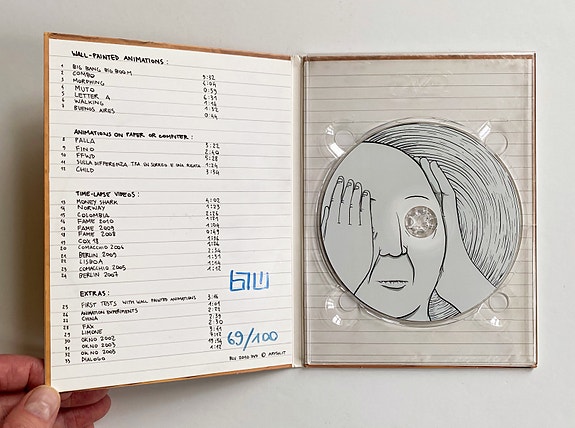 WALL-PAINTED ANIMATIONS:
1 BIG BANG BIG BOOM 9:32
2 COMBO 6:04
3 MORPHING 0:59
4 MUTO 6:31
5 LETTER A 1:14
6 WALKING 1:32
7 BUENOS AIRES 0:44
ANIMATIONS ON PAPER OR COMPUTER:
8 PALLA 3:22
9 FINO 2:40
10 FFWD 5:28
11 SULLA DIFFERENZA TRA UN SORRISO E UNA RISATA 1:24
12 CHILD 3:54
TIME-LAPSE VIDEOS:
13 MONEY SHARK 4:02
14 NORWAY 1:23
15 COLOMBIA 2:26
16 FAME 2010
17 FAME 2009
18 FAME 2008
19 COX 18
20 COMACCHIO 2006
21 BERLIN 2009
22 LISBOA 1:14
23 COMACCHIO 2005 1:12
24 BERLIN 2007
EXTRAS:
25 FIRST TESTS WITH WALL PAINTED ANIMATIONS 3:16
26 ANIMATION EXPERIMENTS 1:01
27 CHINA
28 FAX
29 LIMONE
30 OKNO 2002
31 OKNO 2003
32 OKNO 2005
33 DIALOGO
BLU
69/100
BLU 2010 DVD © ARTSH.IT